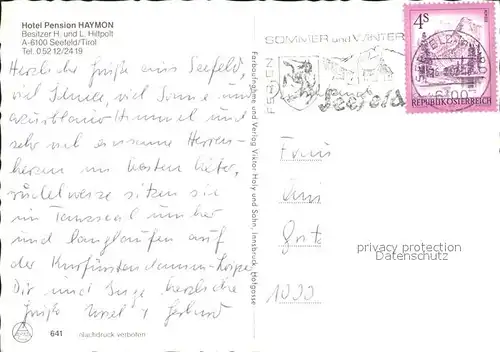 Hotel Pension HAYMON
Besitzer H. und L. Hiltpolt
A-6100 Seefeld/Tirol
Tel. 0 52 12/24 19
Herzliche Grüße aus Seefeld,
viel Schnee, viel Sonne und
azurblauer Himmel und
sehr viel einsame Herren-
herzen im besten Alter,
rudelweise sitzen sie
im Tanzsaal umher
und langlaufen auf
der Kurfürstendamm-Loipe
Dir und Inge herzliche
Grüße
641
Nachdruck verboten
Farbaufnahme und Verlag Viktor Holy und Sohn, Innsbruck, Hofgasse
FERIEN
SOMMER und WINTER
Seefeld
4S
REPUBLIK ÖSTERREICH
6100
Frau
privacy protection
Datenschutz